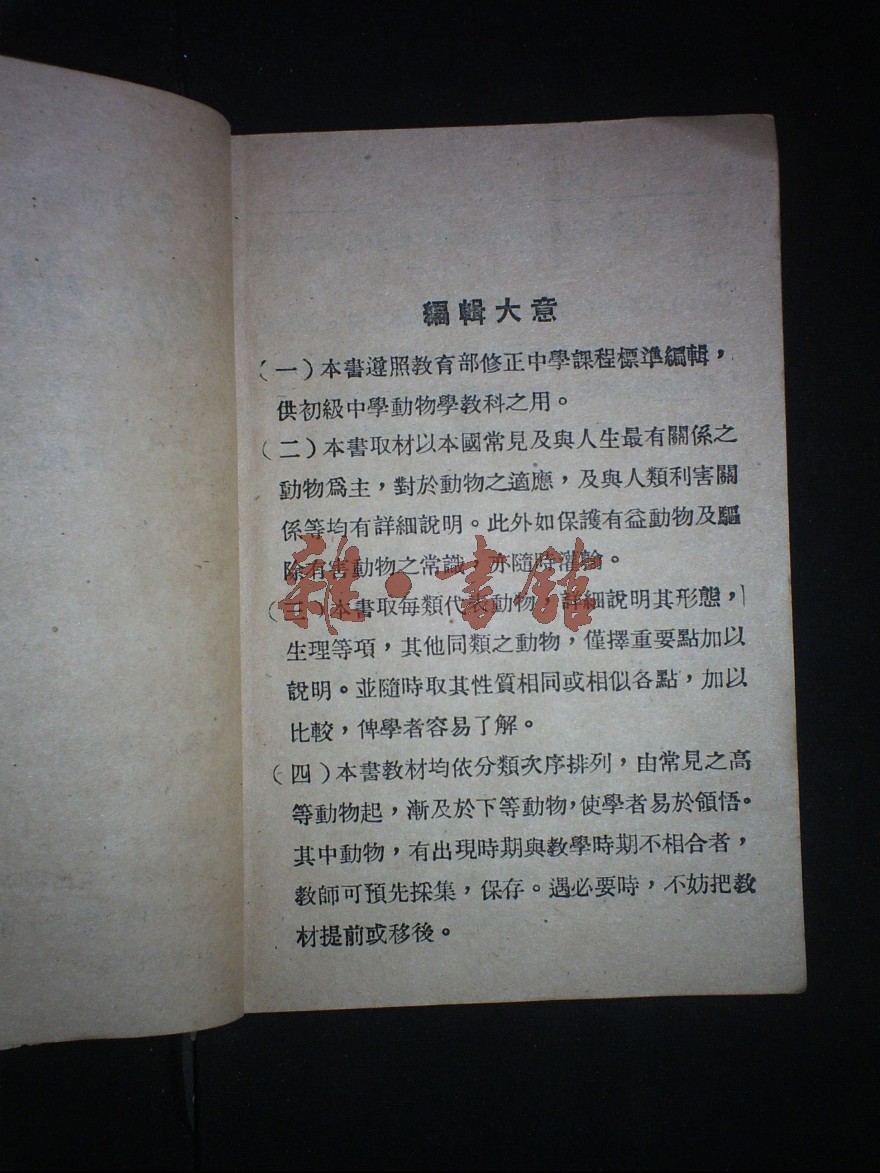 編輯大意
(一)本書遵照教育部修正中學課程標準編輯，
供初級中學動物學教科之用。
(二)本書取材以本國常見及與人生最有關係之
動物爲主，對於動物之適應，及與人類利害關
係等均有詳細說明。此外如保護有益動物及驅
除有害動物之常識，亦隨時灌輸。
雜·書館
(三)本書取每類代表動物，詳細說明其形態，
生理等項，其他同類之動物，僅擇重要點加以
說明。並隨時取其性質相同或相似各點，加以
比較，俾學者容易了解。
(四)本書教材均依分類次序排列，由常見之高
等動物起，漸及於下等動物，使學者易於領悟。
其中動物，有出現時期與教學時期不相合者，
教師可預先採集，保存。遇必要時，不妨把教
材提前或移後。